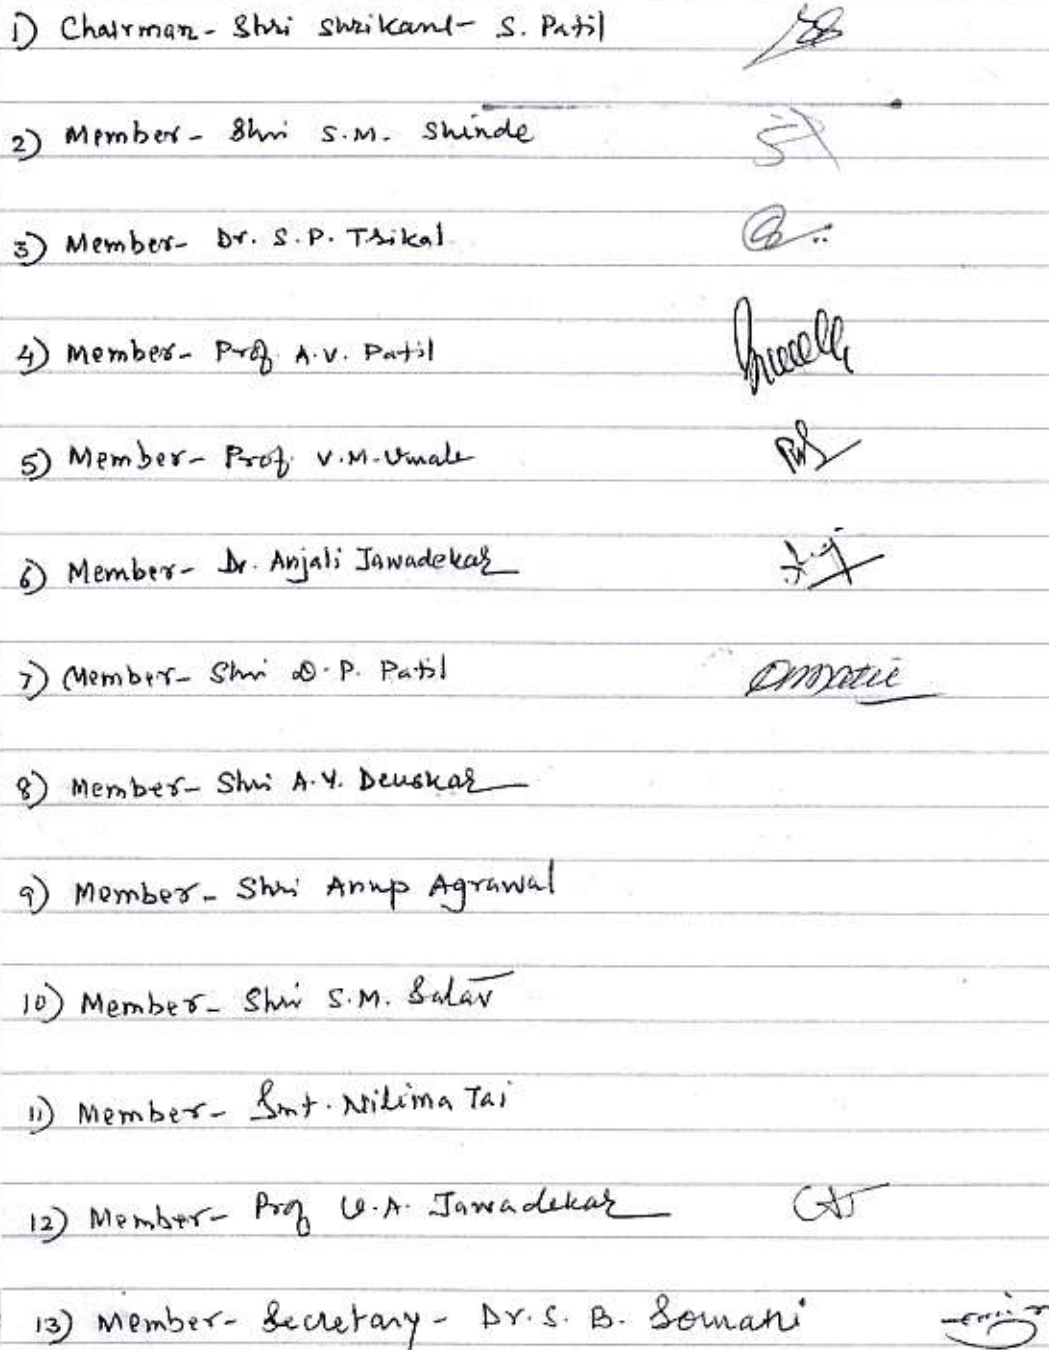 1) Chairman- Shri Shrikant S. Patil
2) Member- Shri S.M. Shinde
3) Member- Dr. S.P. Trikal
4) Member- Prof. A.V. Patil
5) Member- Prof. V.M. Umale
6) Member- Dr. Anjali Jawadekar
7) Member- Shri D.P. Patil
8) Member- Shri A.Y. Deuskar
9) Member- Shri Anup Agrawal
10) Member- Shri S.M. Salav
11) Member- Smt. Nilima Tai
12) Member- Prof A. Jawadekar
13) Member- Secretary- Dr. S. B. Somani